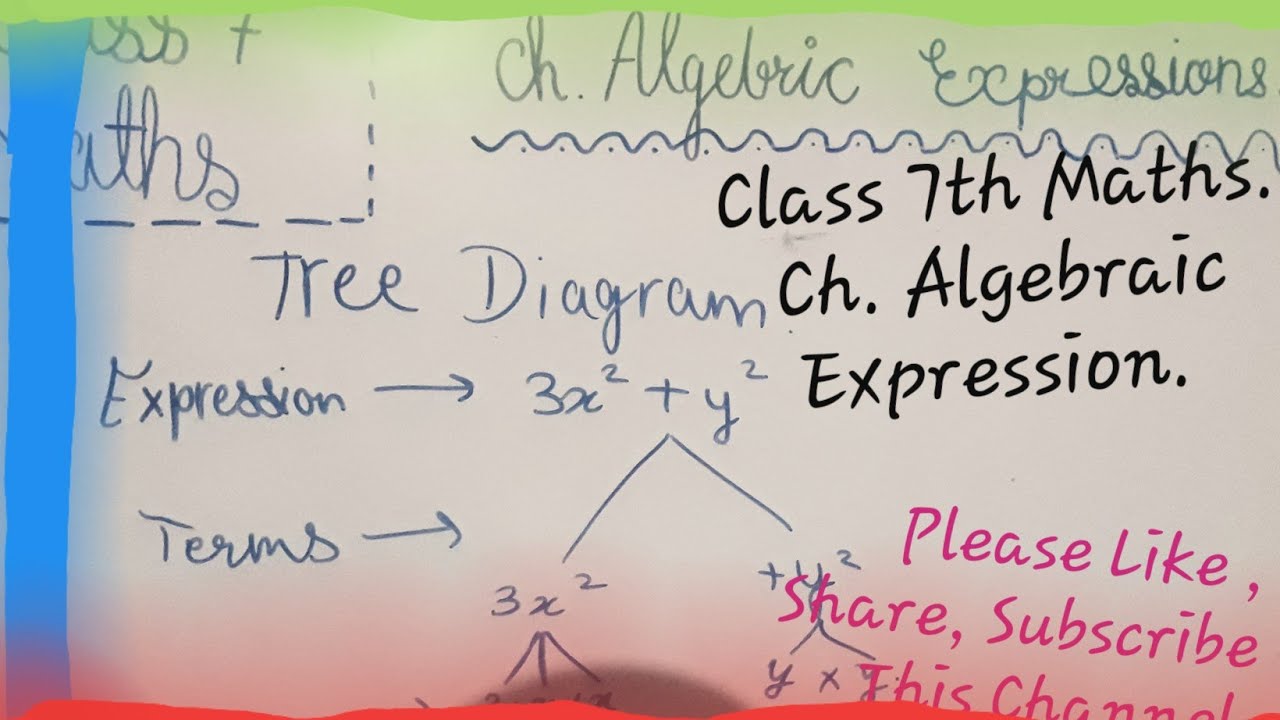 ss +
aths
Ch. Algebric Expressions.
Class 7th Maths.
Ch. Algebraic
Expression.
Tree Diagram
Expression → 3x² + y²
Terms → 3x² +y²
y × y
Please Like,
Share, Subscribe
This Channel